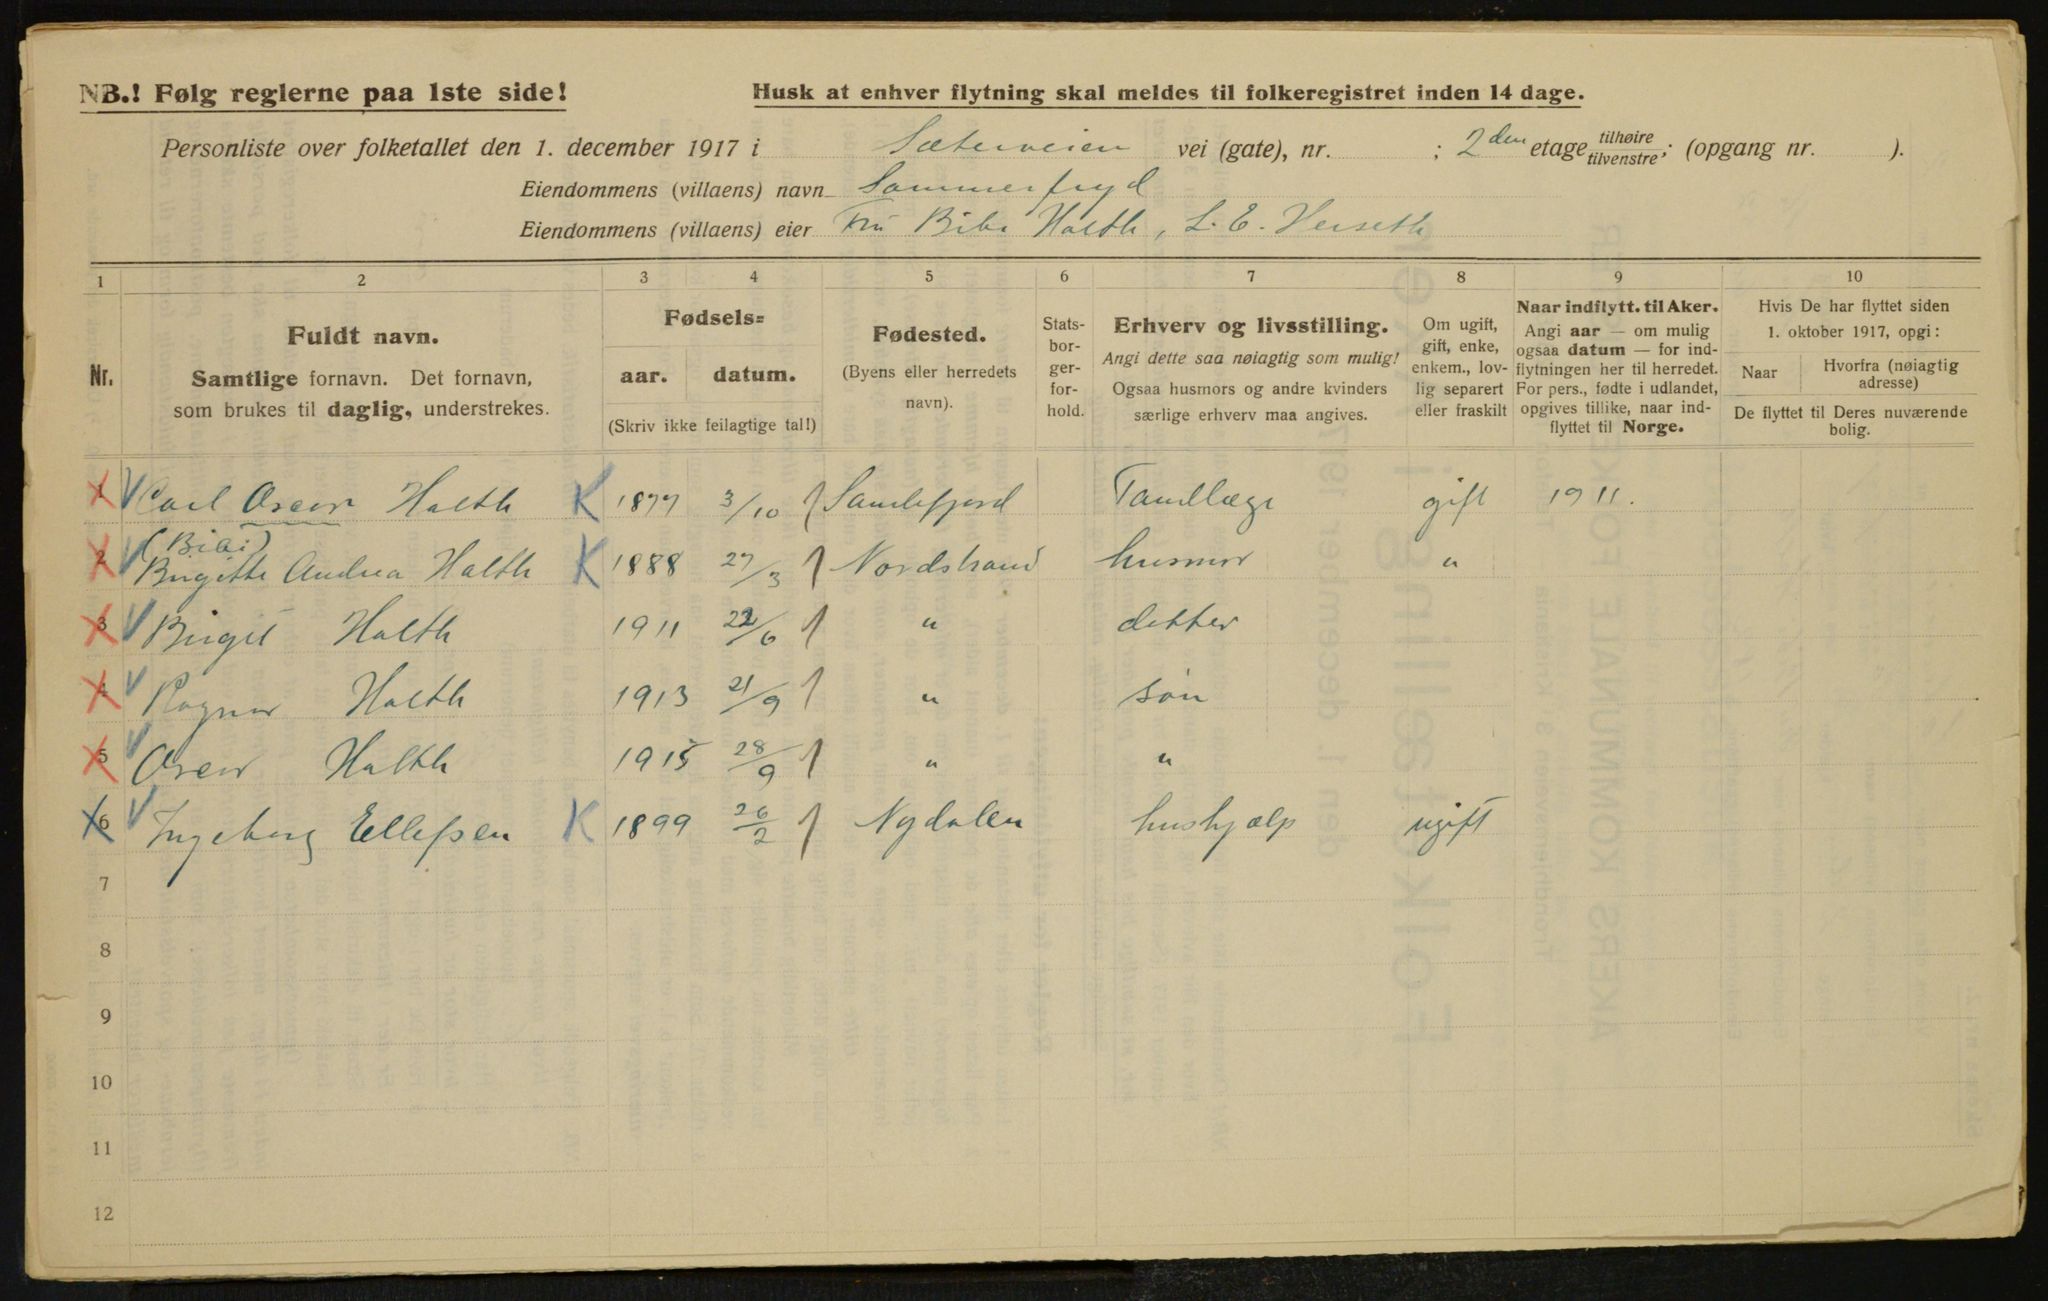 NB.! Følg reglerne paa 1ste side!
Husk at enhver flytning skal meldes til folkeregistret inden 14 dage.
Personliste over folketallet den 1. december 1917 i Sæterveien vei (gate), nr. ; 2den etage tilhøire tilvenstre; (opgang nr. ).
Eiendommens (villaens) navn Sommerfryd
Eiendommens (villaens) eier Fru Bibi Holth, L. E. Herseth
1 2 3 4 5 6 7 8 9 10
Nr.
Fuldt navn.
Samtlige fornavn. Det fornavn,
som brukes til daglig, understrekes.
Fødsels=
aar. datum.
(Skriv ikke feilagtige tal!)
Fødested.
(Byens eller herredets
navn).
Stats-
bor-
ger-
for-
hold.
Erhverv og livsstilling.
Angi dette saa nøiagtig som mulig!
Ogsaa husmors og andre kvinders
særlige erhverv maa angives.
Om ugift,
gift, enke,
enkem., lov-
lig separert
eller fraskilt
Naar indflytt. til Aker.
Angi aar — om mulig
ogsaa datum — for ind-
flytningen her til herredet.
For pers., fødte i utlandet,
opgives tillike, naar ind-
flyttet til Norge.
Hvis De har flyttet siden
1. oktober 1917, opgi:
Naar
Hvorfra (nøiagtig
adresse)
De flyttet til Deres nuværende
bolig.
1 Carl Oscar Holth K 1877 3/10 Sandefjord Tandlæge gift 1911.
(Bibi)
2 Birgitte Andrea Holth K 1888 27/3 Nordstrand husmor "
3 Birgit Holth 1911 22/6 " datter
4 Ragnar Holth 1913 21/9 " søn
5 Oscar Holth 1915 28/9 " "
6 Ingeborg Ellefsen K 1899 26/2 Nydalen hushjælp ugift
7
8
9
10
11
12